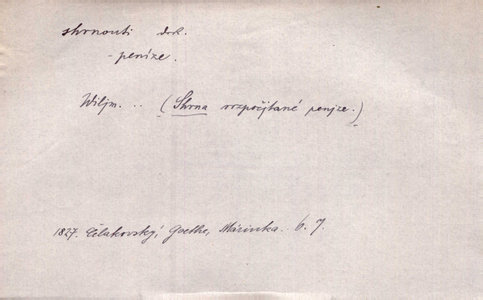 shrnouti dok.
- peníze.
Wiljm. .. (Shrna rozpočjtané penjze.)
1827. Čelakovský, Goethe, Márinka. 6. J.